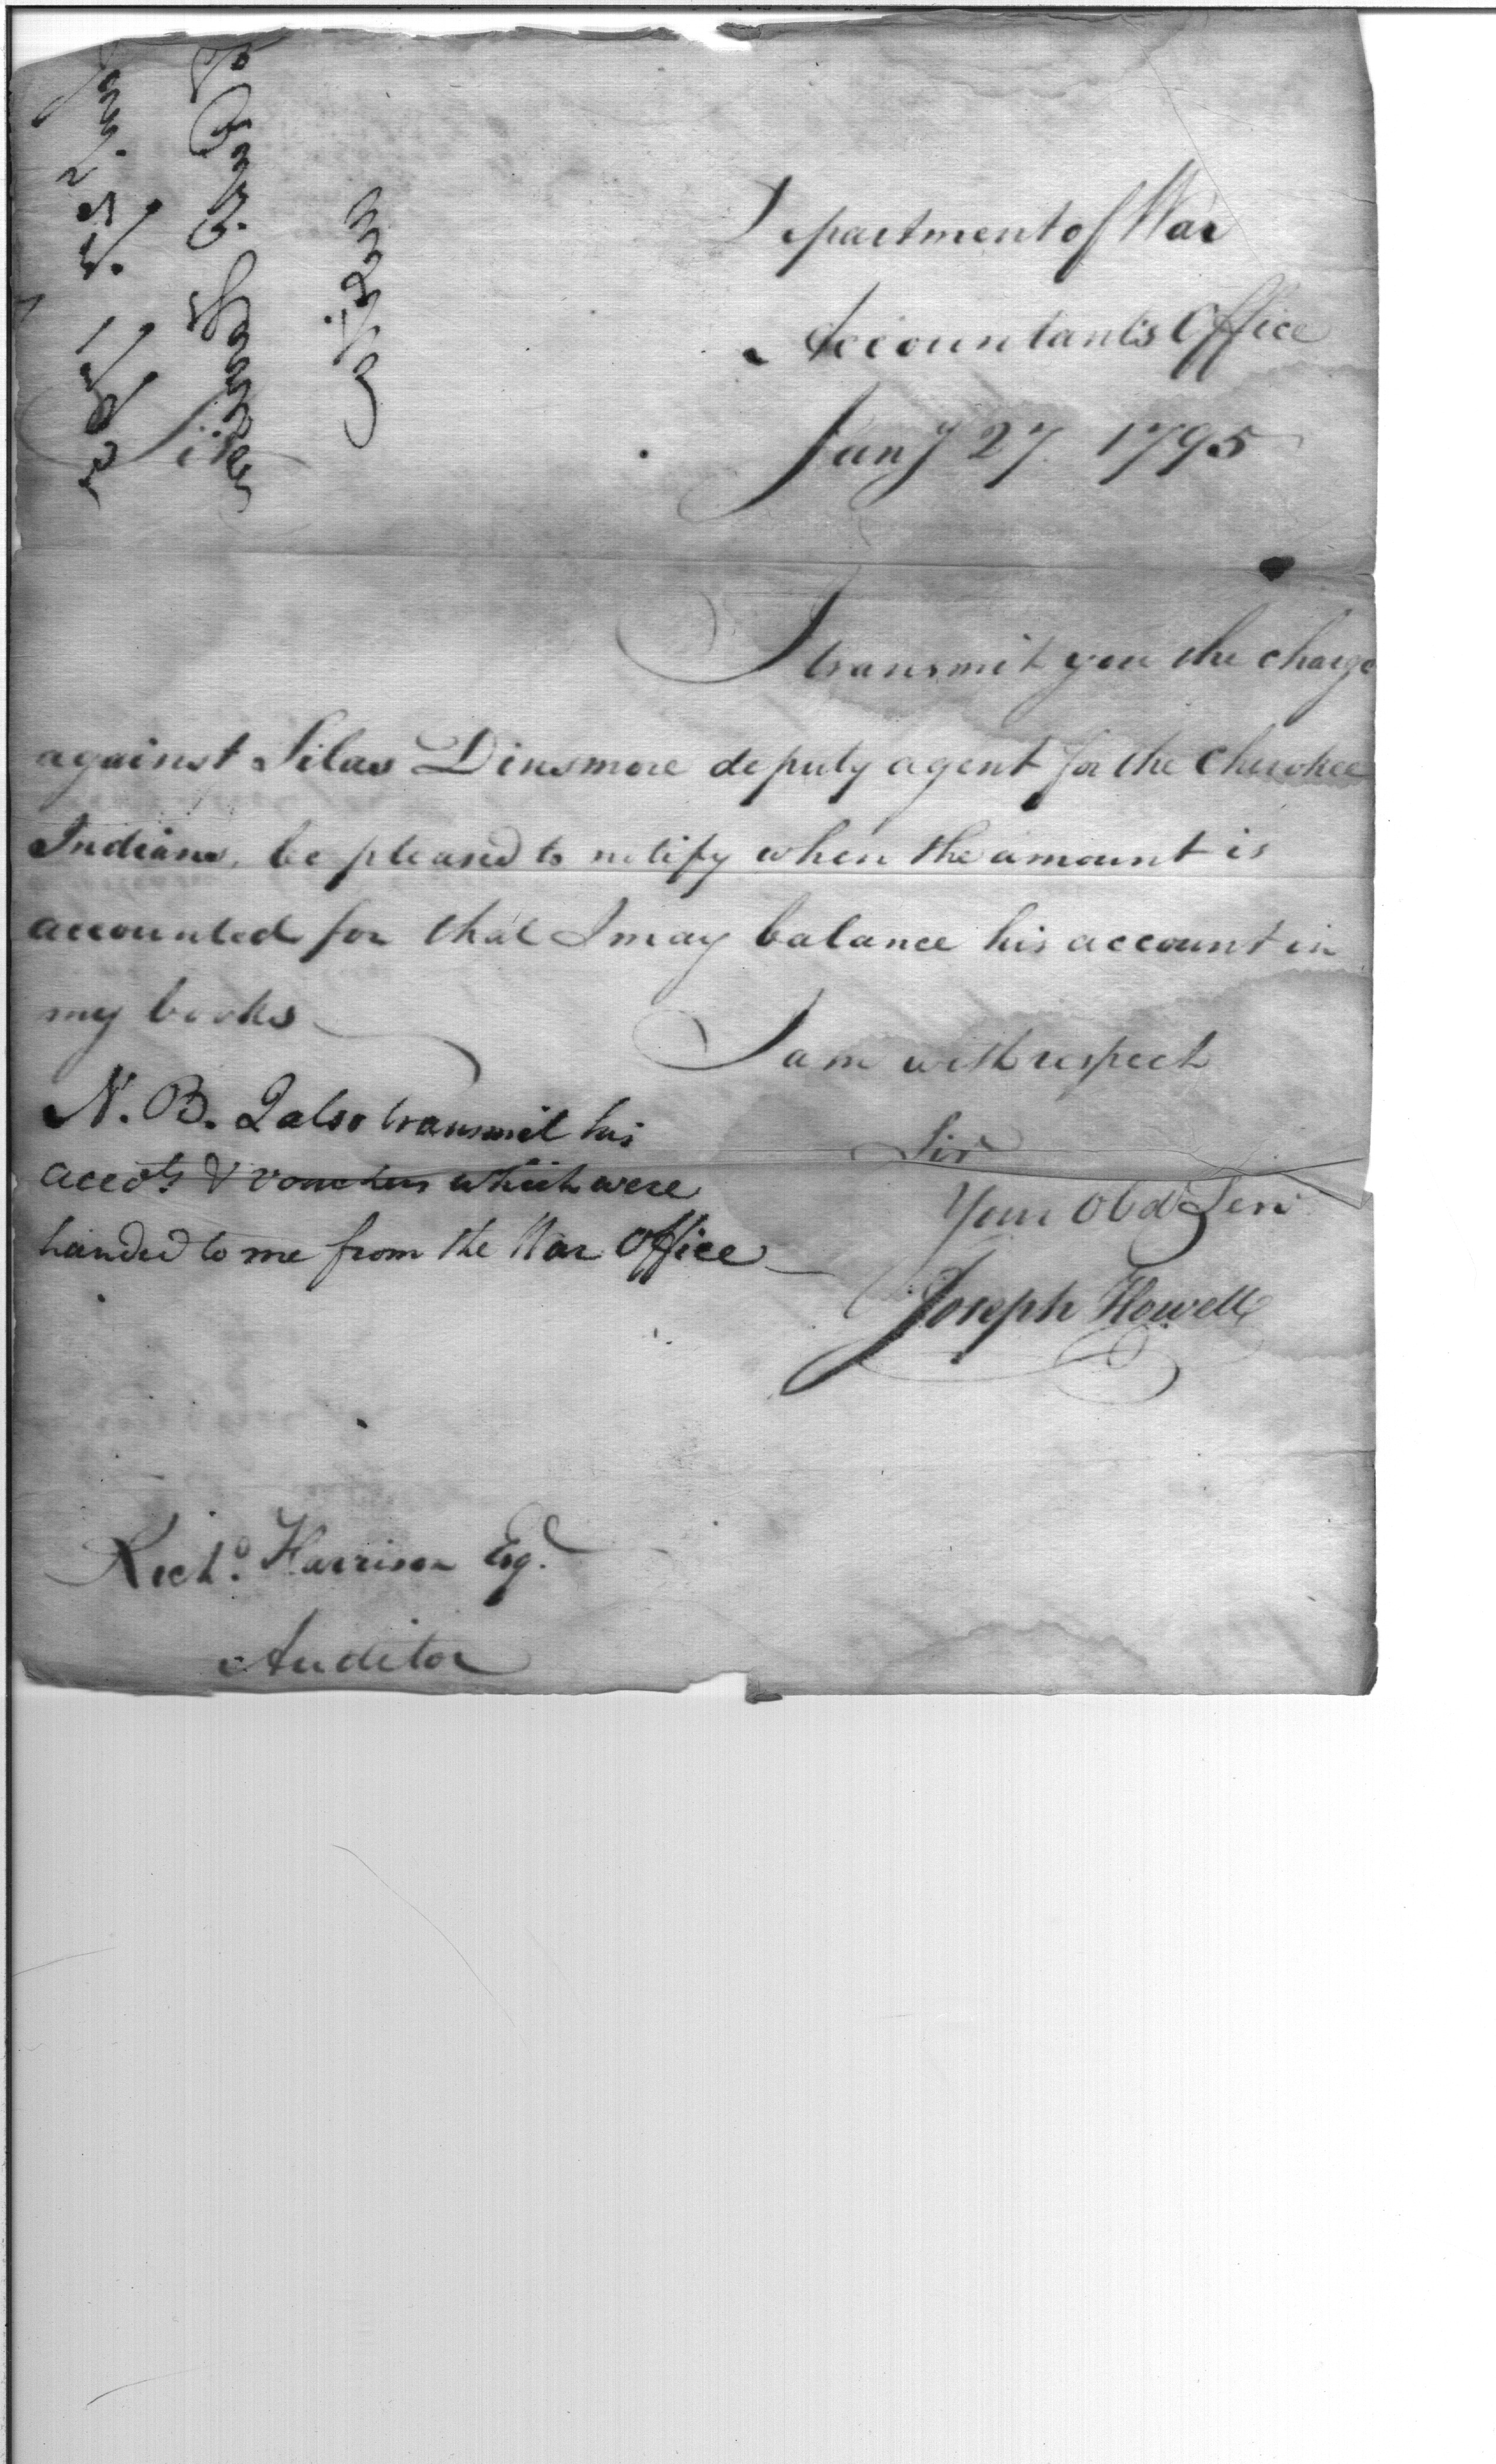 Department of War
Accountants Office
Jany 27 1795
Sir
I transmit you the charge
against Silas Dinsmore deputy agent for the Cherokee
Indians, be pleased to notify when the amount is
accounted for that I may balance his account in
my books
I am with respect
Sir
Your Obd Serv
Joseph Howell
N.B. I also transmit his
accots & vouchers which were
handed to me from the War Office
Richd. Harrison Esqr.
Auditor